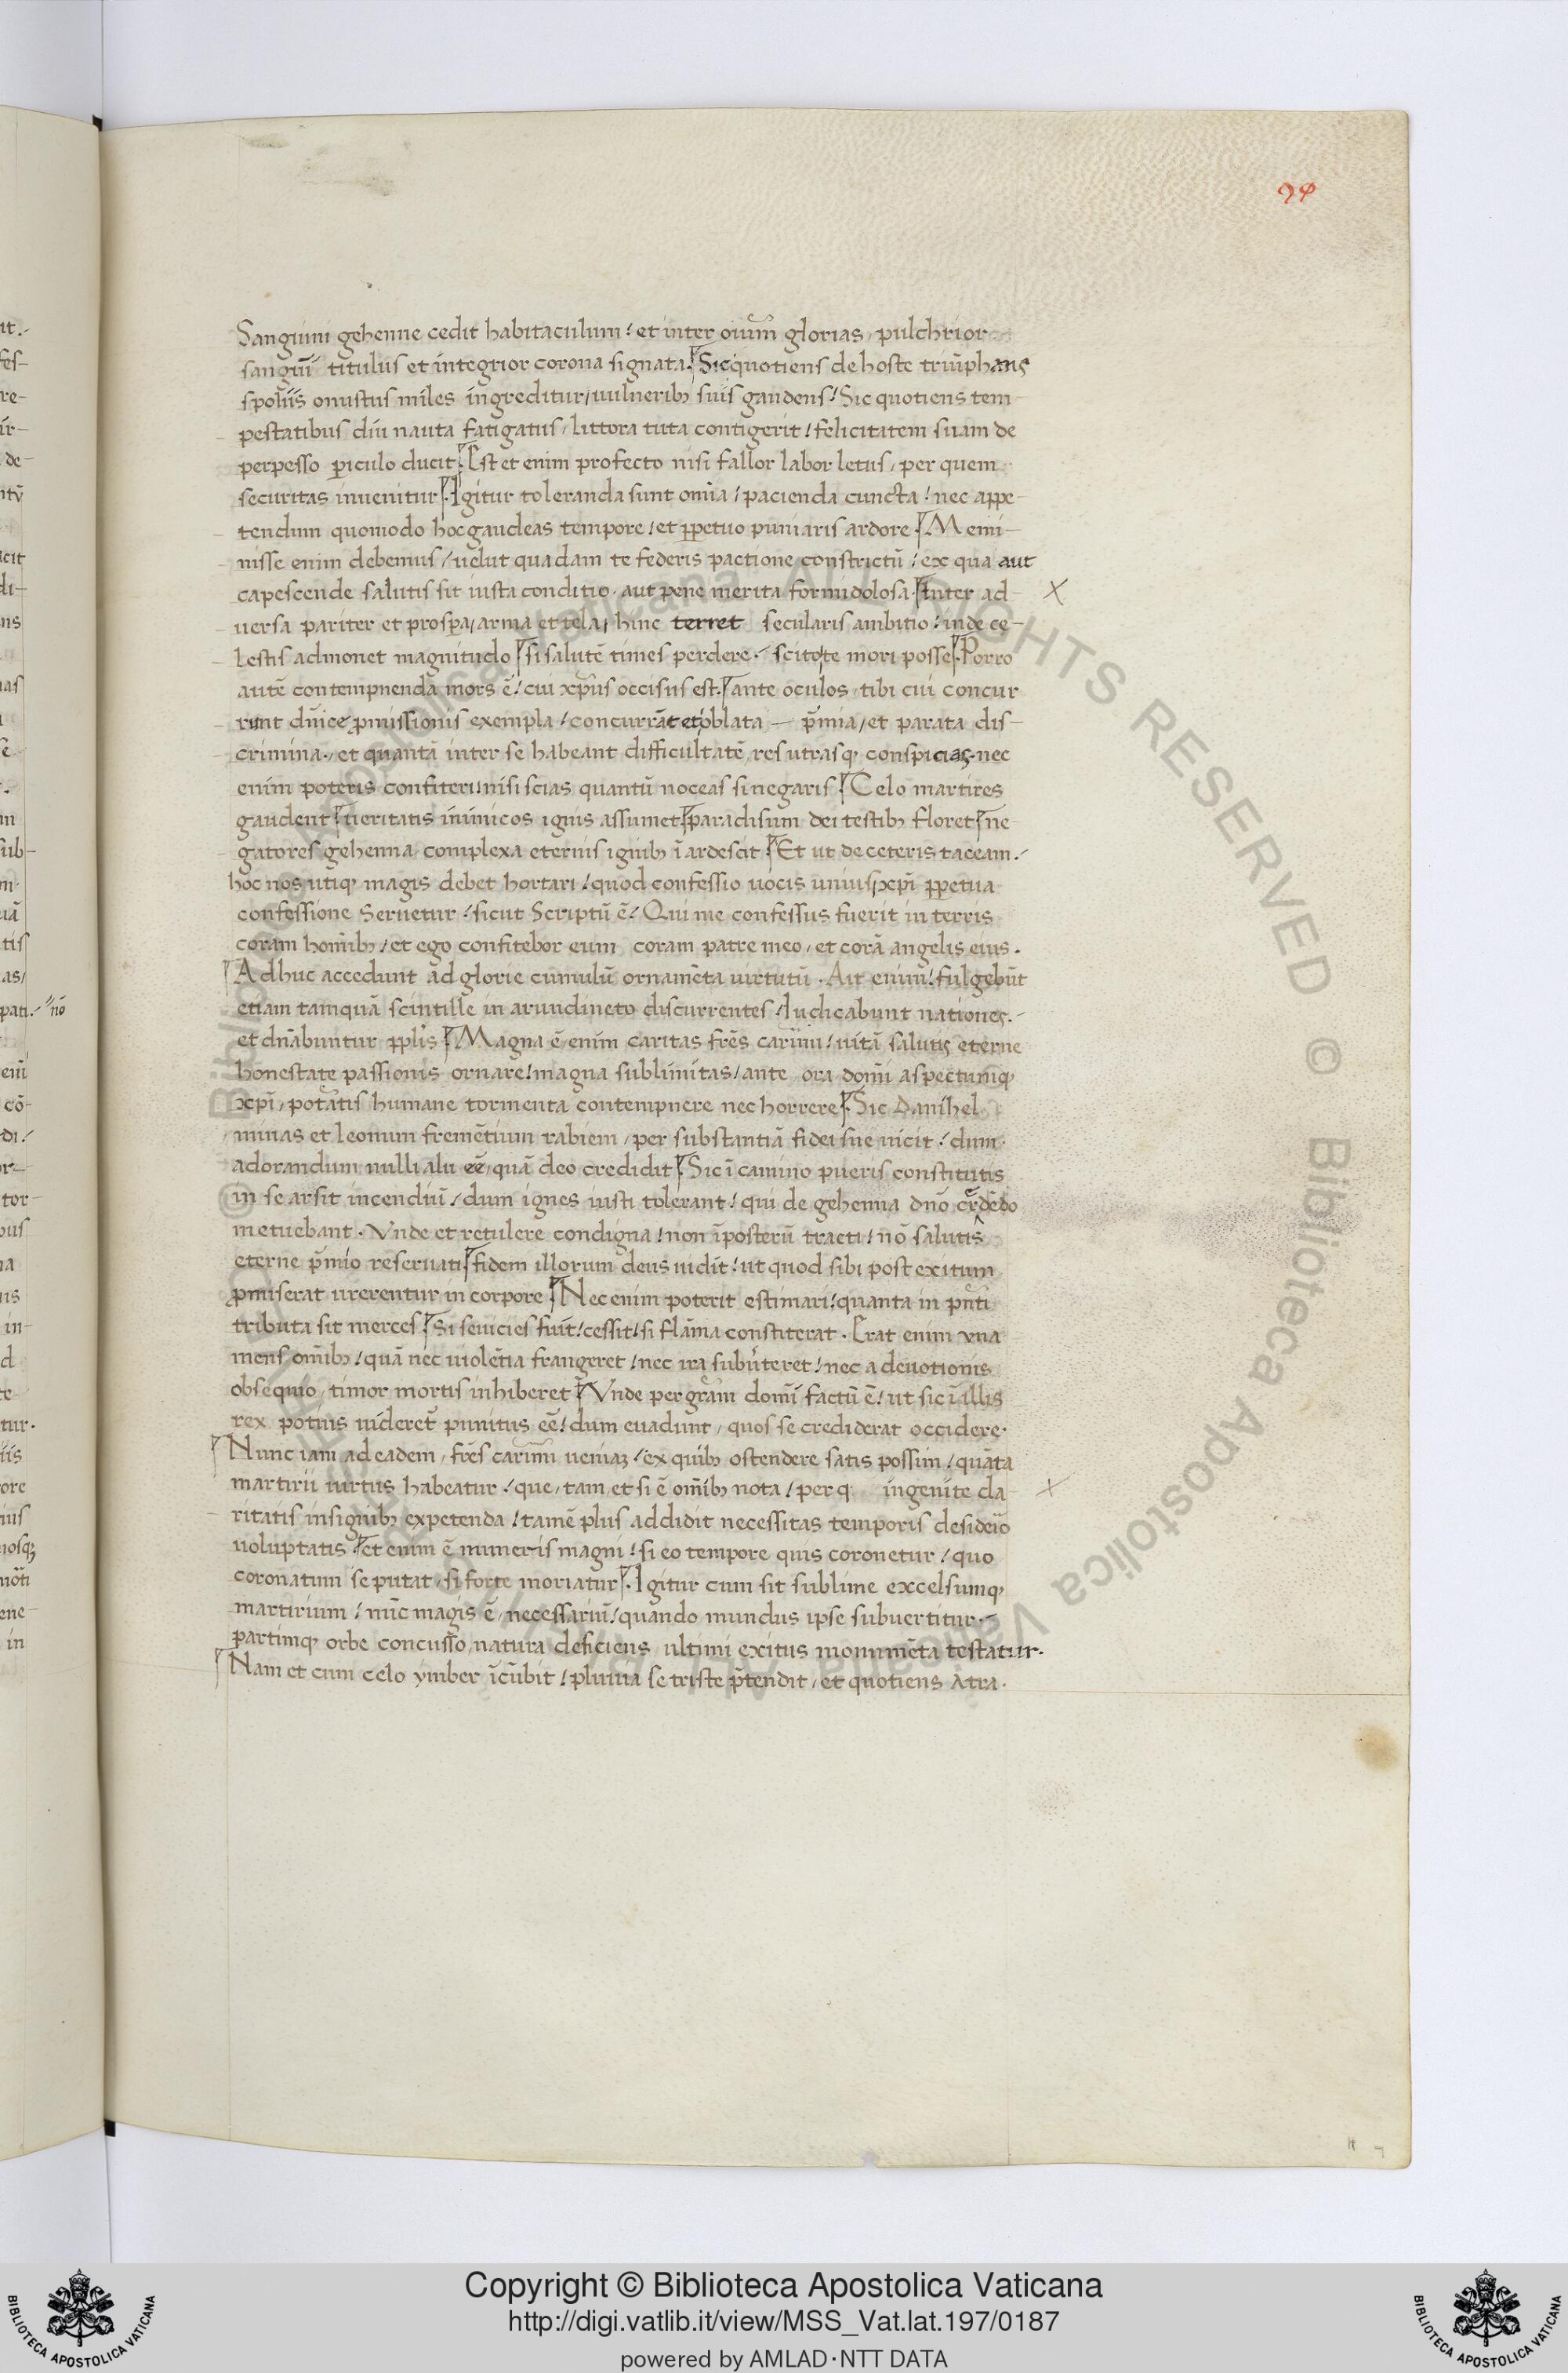 94
Sanguini gehenne cedit habitaculum / et inter oium̄ glorias, pulchrior
sanguı̄ titulus et integrior corona signata. Sic quotiens de hoste triūphans
spoliis onustus miles ingreditur, uulneribꝫ suis gaudens / Sic quotiens tem-
pestatibus diu nauta fatigatus, littora tuta contigerit / felicitatem suam de
perpesso ꝑiculo ducit. Est et enim profecto nisi fallor labor letus, per quem
securitas inuenitur. Igitur toleranda sunt omīa / pacienda cuncta / nec appe-
tendum quomodo hoc gaudeas tempore / et ꝑpetuo puniaris ardore. Memi-
nisse enim debemus / uelut quadam te federis pactione constrictū / ex qua aut
capescende salutis sit iusta conditio, aut pene merita formidolosa. Inter ad-
uersa pariter et prospa, arma et tela, hinc terret secularis ambitio / inde ce-
lestis admonet magnitudo si salutē times perdere. scito te mori posse. Porro
autē contempnendā mors ē / cui xp̄us occisus est. ante oculos, tibi cui concur
runt dn̄ice ꝓmissionis exempla / concurrāt et oblata — p̄mia, et parata dis-
crimina., et quantā inter se habeant difficultatē, res utrasqꝫ conspicias. nec
enim poteris confiteri, nisi scias quantū noceas si negaris. Celo martires
gaudent. ueritatis inimicos ignis assumet. paradisum dei testibꝫ floret. ne
gatores gehenna complexa eternis ignibꝫ ı̄ardescit. Et ut de ceteris taceam.
hoc nos utiqꝫ magis debet hortari / quod confessio uocis unius, xp̄ı ꝑpetua
confessione Seruetur / sicut Scriptū ē / Qui me confessus fuerit in terris
coram hom̄ibꝫ / et ego confitebor eum coram patre meo, et corā angelis eius.
Adhuc accedunt ad glorie cumulū ornamēta uirtutū. Ait enim̄ / fulgebūt
etiam tamquā scintille in arundineto discurrentes / Iudicabunt nationes.
et dn̄abuntur pplis. Magna ē, enim caritas fr̄es carimī / uitā salutis eterne
honestate passionis ornare / magna sublimitas, ante ora domı̄ aspectumqꝫ
xp̄ı, potātis humane tormenta contempnere nec horrere. Sic Danihel
minas et leonum fremētium rabiem, per substantiā fidei sue uicit / dum
adorandum nulli alii eē, quā deo credidit. Sic ı̄ camino pueris constitutis
in se arsit incendiū / dum ignes iusti tolerant / qui de gehenna dn̄o cr̄edēdo
metuebant. Vnde et retulere condigna / non ı̄posterū tracti / nō salutis
eterne p̄mio reseruati. fidem illorum deus uidit / ut quod sibi post exitum
ꝓmiserat urerentur in corpore. Nec enim poterit estimari / quanta in pn̄ti
tributa sit merces. Si seuicies fuit / cessit / si flāma constiterat. Erat enim vna
mens om̄ibꝫ / quā nec uiolētia frangeret / nec ira subūteret / nec a deuotionis
obsequio, timor mortis inhiberet. Vnde per gram̄ domı̄ factū ē / ut sic ı̄ illis
rex potius uideret̄ punitus eē / dum euadunt, quos se crediderat occidere.
Nunc iam ad eadem, fr̄es carimī ueniaꝫ / ex quibꝫ ostendere satis possim / quāta
martirii uirtus habeatur / que, tam et si ē om̄ibꝫ nota / per q ingenite cla
ritatis insignibꝫ expetenda / tamē plus addidit necessitas temporis desideio
uoluptatis. et enim ē muneris magni / si eo tempore quis coronetur / quo
coronatum se putat, si forte moriatur. Igitur cum sit sublime excelsumqꝫ
martirium / nūc magis ē, necessariū / quando mundus ipse subuertitur.
partimqꝫ orbe concusso, natura deficiens ultimi exitus monumēta testatur.
Nam et cum celo ymber ı̄cūbit / pluuia se triste p̄tendit, et quotiens Atra.
Copyright © Biblioteca Apostolica Vaticana
http://digi.vatlib.it/view/MSS_Vat.lat.197/0187
powered by AMLAD·NTT DATA